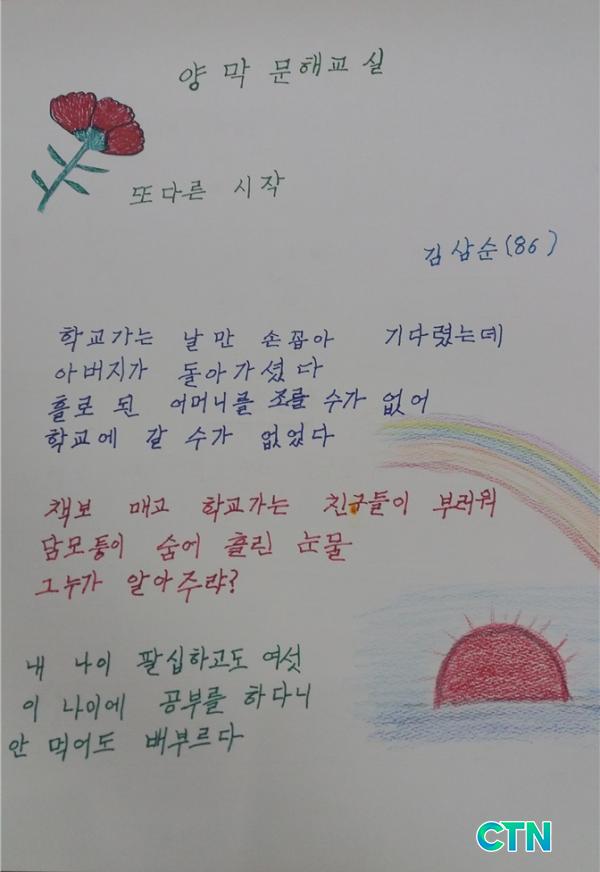 양 막 문해교실
또다른 시작
김삼순(86)
학교가는 날만 손꼽아 기다렸는데
아버지가 돌아가셨다
홀로 된 어머니를 조를 수가 없어
학교에 갈 수가 없었다
책보 매고 학교가는 친구들이 부러워
담모퉁이 숨어 흘린 눈물
그누가 알아주랴?
내 나이 팔십하고도 여섯
이 나이에 공부를 하다니
안 먹어도 배부르다
CTN